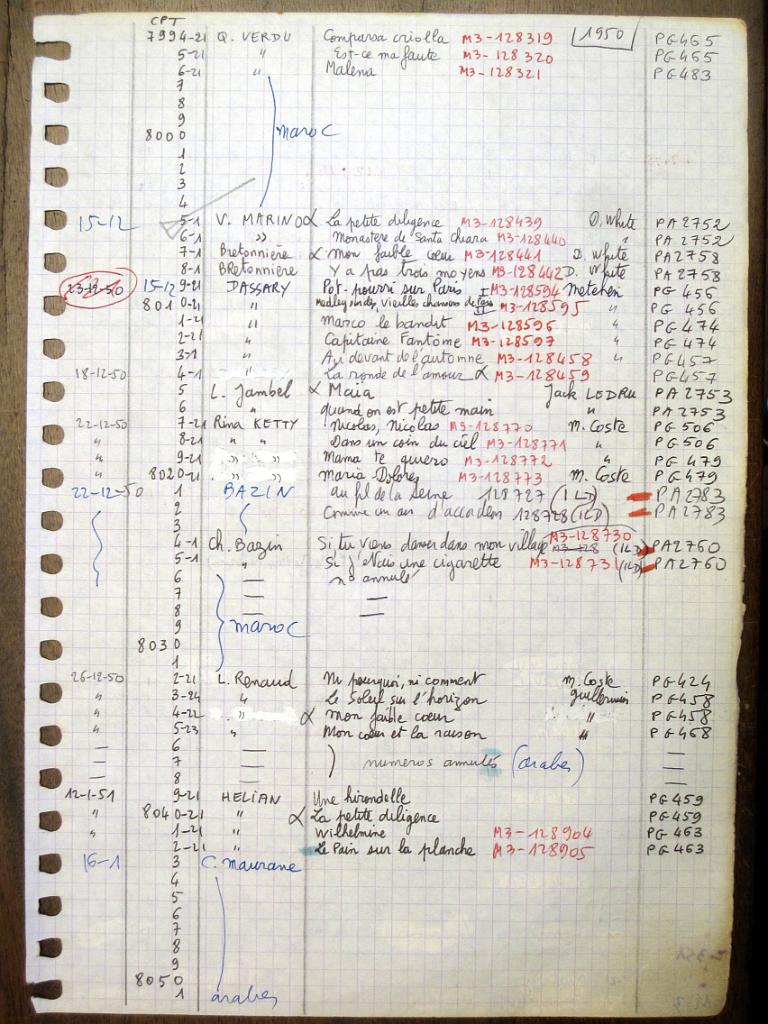 CPT
7994-21 Q. VERDU Comparsa criolla M3-128319 1950 PG465
5-21 " Est-ce ma faute M3-128320 PG465
6-21 " Malena M3-128321 PG483
7
8
9
8000 maroc
1
2
3
4
15-12 5-1 V. MARINO α La petite diligence M3-128439 D. White PA2752
6-1 " Monastère de Santa Chiara M3-128440 " PA2752
7-1 Bretonnière α mon faible cœur M3-128441 D. White PA2758
8-1 BRetonnière Y a pas trois moyens M3-128442 D. White PA2758
23-12-50 15-12 9-21 DASSARY Pot-pourri sur Paris I M3-128594 Metehen PG 456
801 0-21 " vieilles chansons de Paris II M3-128595 " PG 456
1-21 " Marco le bandit M3-128596 " PG474
2-21 " Capitaine Fantôme M3-128597 " PG474
3-1 " Au devant de l'automne M3-128458 " PG457
18-12-50 4-1 " La ronde de l'amour α M3-128459 PG457
5 L. Jambel α Maïa Jack LEDRU PA2753
6 " quand on est petite main " PA2753
22-12-50 7-21 Rina KETTY Nicolas, Nicolas M3-128770 M. Coste PG506
" 8-21 " " Dans un coin du ciel M3-128771 " PG506
" 9-21 " " Mama te quiero M3-128772 PG479
" 8020-21 " " Maria Dolores M3-128773 M. Coste PG479
22-12-50 1 BAZIN au fil de la Seine 128727 (ILD) PA2783
2 Comme un air d'accordéon 128728 (ILD) PA2783
3
4-1 Ch. Bazin Si tu viens danser dans mon village M3-128730 M3-128 (ILD) PA2760
5-1 " Si j'étais une cigarette M3-128731 (ILD) PA2760
6 — n° annulé
7 —
8 —
9 maroc
8030
1
26-12-50 2-21 L. Renaud Ni pourquoi, ni comment M. Coste PG424
" 3-24 " Le Soleil sur l'horizon guillermin PG458
" 4-22 " α mon faible cœur " PG458
" 5-23 " Mon cœur et la raison " PG468
— 6 —
— 7 — numéros annulés (arabes) —
— 8 — —
12-1-51 9-21 HELIAN Une hirondelle PG459
" 8040-21 " α La petite diligence PG459
" 1-21 " Wilhelmine M3-128904 PG463
" 2-21 " Le Pain sur la planche M3-128905 PG463
16-1 3 C. Maurane
4
5
6
7
8
9
8050
1 arabes